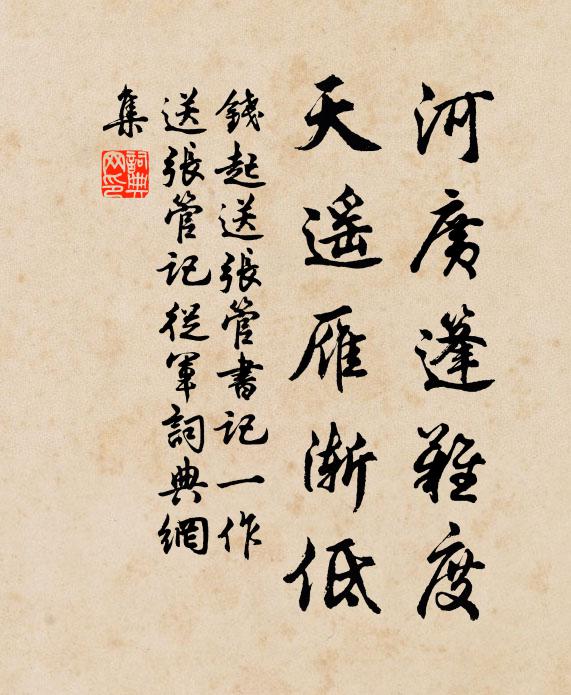 河广蓬難度
天遥雁渐低
錢起送張管書記一作
送張管記従軍詞典網
集
詞典
网印